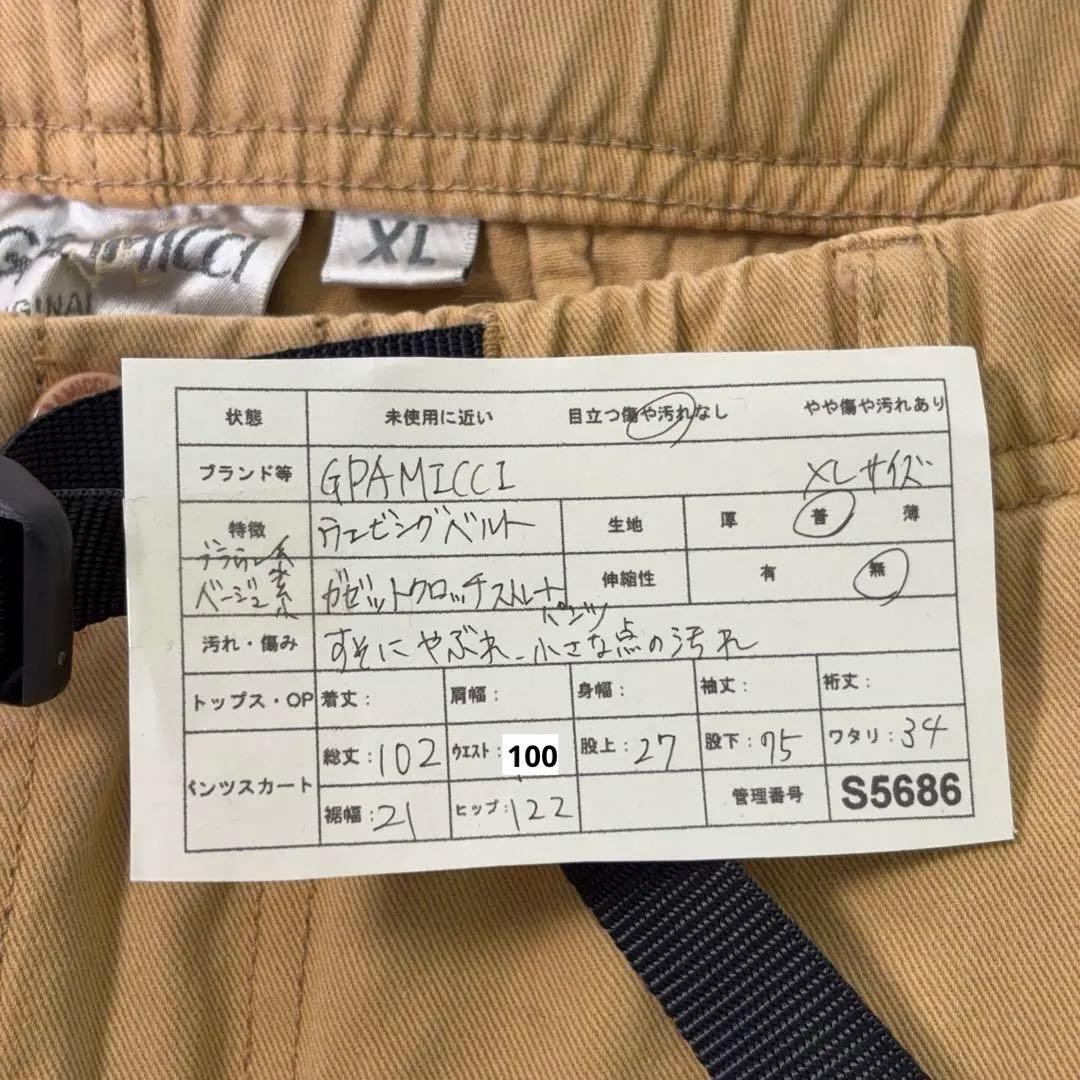 GRAMICCI
XL
状態 未使用に近い 目立つ傷や汚れなし やや傷や汚れあり
ブランド等 GPAMICCI XLサイズ
特徴 ウェビングベルト 生地 厚 普 薄
ブラウン系
ベージュ系 ガゼットクロッチストレートパンツ 伸縮性 有 無
汚れ・傷み すそにやぶれ、小さな点の汚れ
トップス・OP 着丈: 肩幅: 身幅: 袖丈: 裄丈:
パンツスカート 総丈:102 ウエスト:100 股上:27 股下:75 ワタリ:34
裾幅:21 ヒップ:122 管理番号 S5686